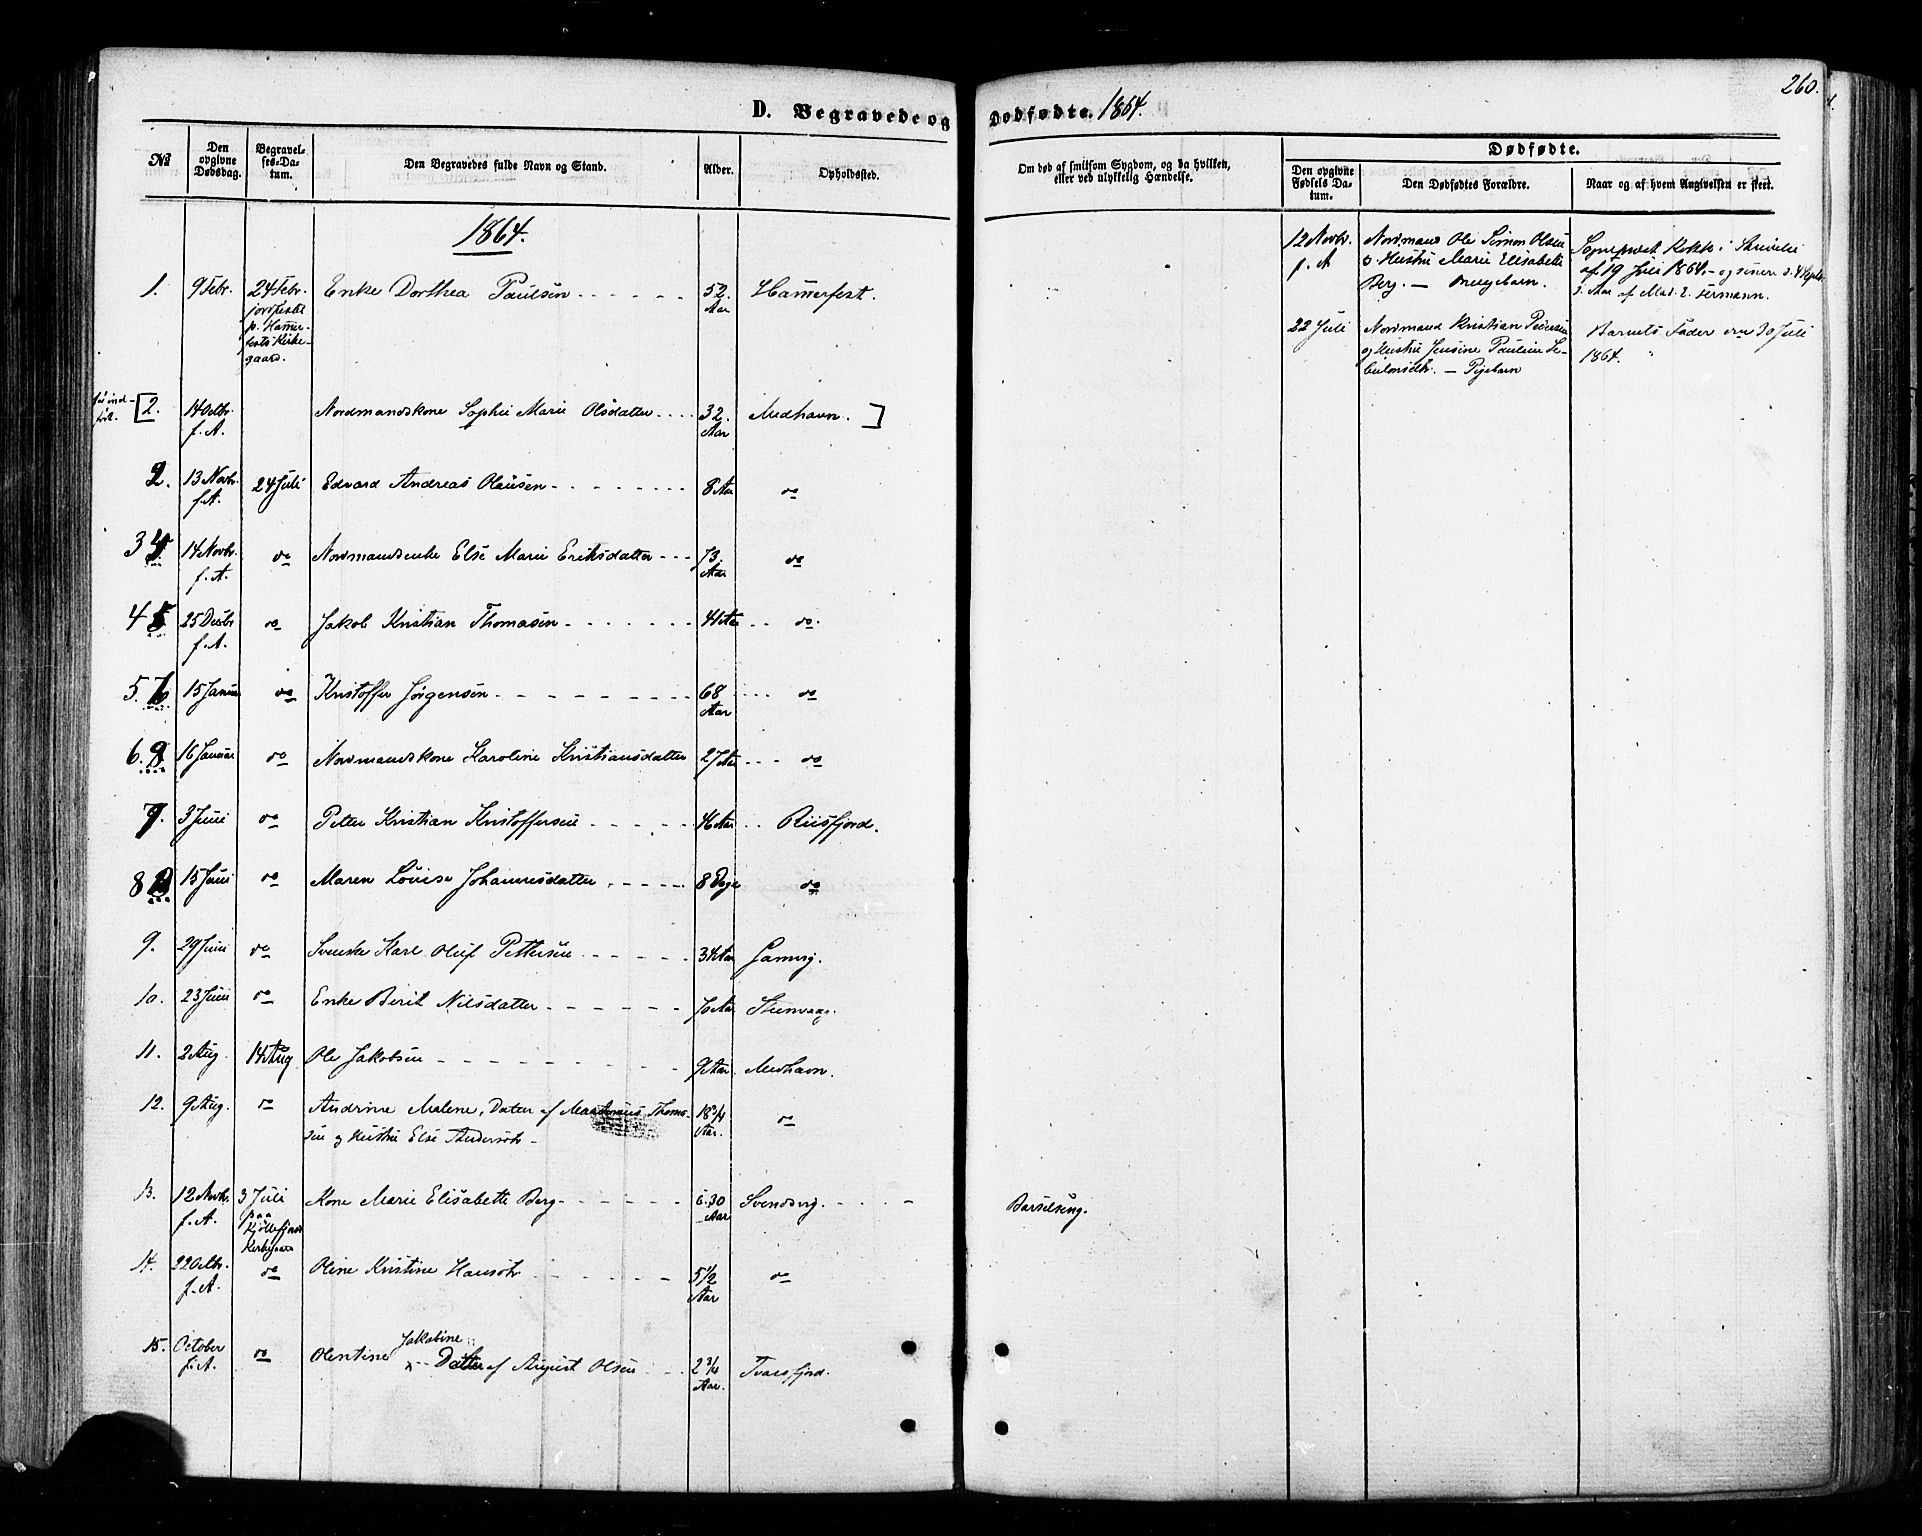 260.
D. Begravede og Dødfødte. 1864.
№
Den opgivne Dødsdag.
Begravelses-Datum.
Den Begravedes fulde Navn og Stand.
Alder.
Opholdssted.
Om død af smitsom Sygdom, og da hvilken, eller ved ulykkelig Hændelse.
Dødfødte.
Den opgivne Fødsels Datum.
Den Dødfødtes Forældre.
Naar og af hvem Angivelsen er skeet.
1864.
1. 9 Febr. 24 Febr. Enke Dorthea Paulsen 52 Aar Hamerfest.
jordfestet
p. Hamer-
fests Kirke-
gaard.
[2. 14 Octbr. f. A. Nordmandskone Sophie Marie Olsdatter 32 Aar Medhavn.]
2. 13 Novbr. f. A. 24 Juli Edvard Andreas Olausen 8 Aar do
3 14 Novbr. f. A. do Nordmandsenke Else Marie Eriksdatter 73 Aar do
4 25 Decbr f. A. do Jakob Kristian Thomasen 41 Aar do.
5. 15 Januar do Kristoffer Jørgensen 68 Aar do
6. 16 Januar do Nordmandskone Karoline Kristiansdatter 27 Aar do
7. 3 Juni do Petter Kristian Kristoffersen 46 Aar Riisfjord.
8 15 Juni do Maren Lovise Johannesdatter 8 Dage do
9. 29 Juni do Svenske Karl Oluf Pettersen 34 Aar Gamvig.
10. 23 Juni do Enke Berit Nilsdatter 70 Aar Steenvaag.
11. 2 Aug. 14 Aug Ole Jakobsen 9 Aar Medhavn.
12. 9 Aug. do Andrine Malene, Datter af Thoma-
sen og Hustru Else Andersdtr 18 3/4 Aar. do
13. 12 Novbr. f. A. 3 Juli Kone Marie Elisabette Berg 30 Aar Svendsvig. Barselseng.
paa
Kjøllefjord
Kirkegaard
14. 22 Octbr. f. A. do Oline Kristine Hansdtr 5 1/2 Aar do
15. October f. A. do Olentine Jakobine Datter af August Olsen 2 3/4 Aar. Tvarfjord.
12 Novbr. f. A Nordmand Ole Simon Olsen
o. Hustru Marie Elisabette
Berg. — Drengebarn.
Sogneprest Kokk i Skrivelse
af 19 Juli 1864 — og senere d. 4 Septbr
s. Aar af Mad. E. Hermann.
22 Juli Nordmand Kristian Pedersen
og Hustru Jensine Pauline
— Pigebarn
Barnets Fader den 30 Juli
1864.